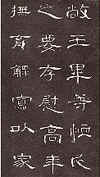 故王畢等恤民
之要存慰高年
撫育鰥寡以家